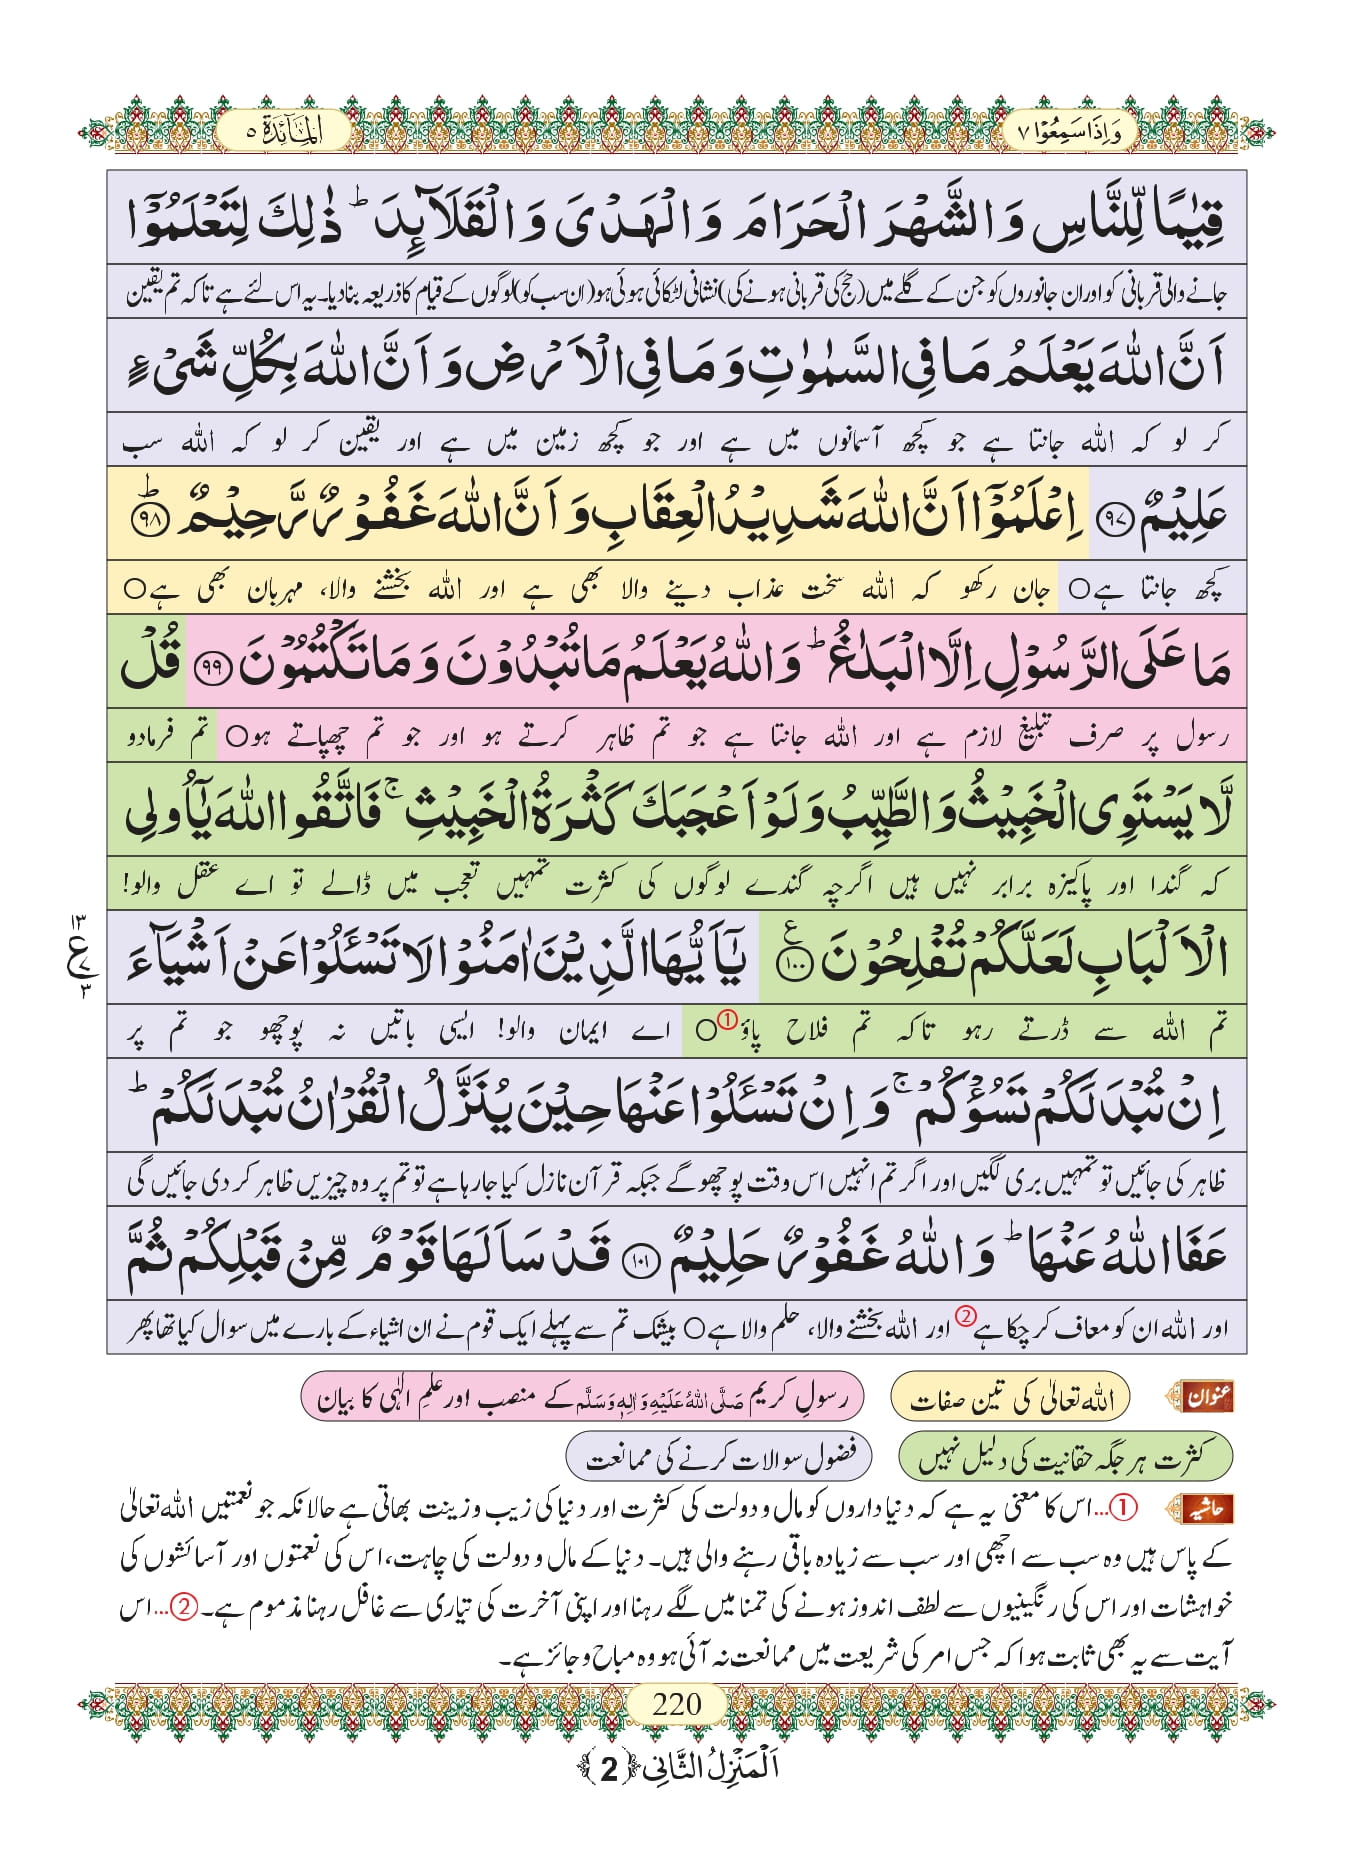 وَاِذَا سَمِعُوْا ٧
اَلْمَآئِدَة ٥
قِیٰمًا لِّلنَّاسِ وَ الشَّهْرَ الْحَرَامَ وَ الْهَدْیَ وَ الْقَلَآىِٕدَ ؕ ذٰلِكَ لِتَعْلَمُوْۤا
جانے والی قربانی کو اور ان جانوروں کو جن کے گلے میں (حج کی قربانی ہونے کی) نشانی لٹکائی ہوئی ہو (ان سب کو) لوگوں کے قیام کا ذریعہ بنا دیا۔ یہ اس لئے ہے تاکہ تم یقین
اَنَّ اللّٰهَ یَعْلَمُ مَا فِی السَّمٰوٰتِ وَ مَا فِی الْاَرْضِ وَ اَنَّ اللّٰهَ بِكُلِّ شَیْءٍ
کر لو کہ اللہ جانتا ہے جو کچھ آسمانوں میں ہے اور جو کچھ زمین میں ہے اور یقین کر لو کہ اللہ سب
عَلِیْمٌ ﴿٩٧﴾ اِعْلَمُوْۤا اَنَّ اللّٰهَ شَدِیْدُ الْعِقَابِ وَ اَنَّ اللّٰهَ غَفُوْرٌ رَّحِیْمٌ ؕ﴿٩٨﴾
کچھ جانتا ہے○ جان رکھو کہ اللہ سخت عذاب دینے والا بھی ہے اور اللہ بخشنے والا، مہربان بھی ہے○
مَا عَلَى الرَّسُوْلِ اِلَّا الْبَلٰغُ ؕ وَ اللّٰهُ یَعْلَمُ مَا تُبْدُوْنَ وَ مَا تَكْتُمُوْنَ ﴿٩٩﴾ قُلْ
رسول پر صرف تبلیغ لازم ہے اور اللہ جانتا ہے جو تم ظاہر کرتے ہو اور جو تم چھپاتے ہو○ تم فرمادو
لَّا یَسْتَوِی الْخَبِیْثُ وَ الطَّیِّبُ وَ لَوْ اَعْجَبَكَ كَثْرَةُ الْخَبِیْثِ ۚ فَاتَّقُوا اللّٰهَ یٰۤاُولِی
کہ گندا اور پاکیزہ برابر نہیں ہیں اگرچہ گندے لوگوں کی کثرت تمہیں تعجب میں ڈالے تو اے عقل والو!
الْاَلْبَابِ لَعَلَّكُمْ تُفْلِحُوْنَ ﴿١٠٠﴾ع یٰۤاَیُّهَا الَّذِیْنَ اٰمَنُوْا لَا تَسْــٴَـلُوْا عَنْ اَشْیَآءَ
١٣ ع ٧ ٣
تم اللہ سے ڈرتے رہو تاکہ تم فلاح پاؤ①○ اے ایمان والو! ایسی باتیں نہ پوچھو جو تم پر
اِنْ تُبْدَ لَكُمْ تَسُؤْكُمْ ۚ وَ اِنْ تَسْــٴَـلُوْا عَنْهَا حِیْنَ یُنَزَّلُ الْقُرْاٰنُ تُبْدَ لَكُمْ ؕ
ظاہر کی جائیں تو تمہیں بری لگیں اور اگر تم انہیں اس وقت پوچھو گے جبکہ قرآن نازل کیا جا رہا ہے تو تم پر وہ چیزیں ظاہر کر دی جائیں گی
عَفَا اللّٰهُ عَنْهَا ؕ وَ اللّٰهُ غَفُوْرٌ حَلِیْمٌ ﴿١٠١﴾ قَدْ سَاَلَهَا قَوْمٌ مِّنْ قَبْلِكُمْ ثُمَّ
اور اللہ ان کو معاف کر چکا ہے② اور اللہ بخشنے والا، حلم والا ہے○ بیشک تم سے پہلے ایک قوم نے ان اشیاء کے بارے میں سوال کیا تھا پھر
عنوان اللہ تعالیٰ کی تین صفات رسولِ کریم صَلَّی اللّٰہُ عَلَیْہِ وَاٰلِہٖ وَسَلَّم کے منصب اور علمِ الٰہی کا بیان
کثرت ہر جگہ حقانیت کی دلیل نہیں فضول سوالات کرنے کی ممانعت
حاشیہ ①…اس کا معنی یہ ہے کہ دنیا داروں کو مال و دولت کی کثرت اور دنیا کی زیب و زینت بھاتی ہے حالانکہ جو نعمتیں اللہ تعالیٰ
کے پاس ہیں وہ سب سے اچھی اور سب سے زیادہ باقی رہنے والی ہیں۔ دنیا کے مال و دولت کی چاہت، اس کی نعمتوں اور آسائشوں کی
خواہشات اور اس کی رنگینیوں سے لطف اندوز ہونے کی تمنا میں لگے رہنا اور اپنی آخرت کی تیاری سے غافل رہنا مذموم ہے۔ ②…اس
آیت سے یہ بھی ثابت ہوا کہ جس امر کی شریعت میں ممانعت نہ آئی ہو وہ مباح و جائز ہے۔
220
اَلْمَنْزِلُ الثَّانِی ﴿2﴾